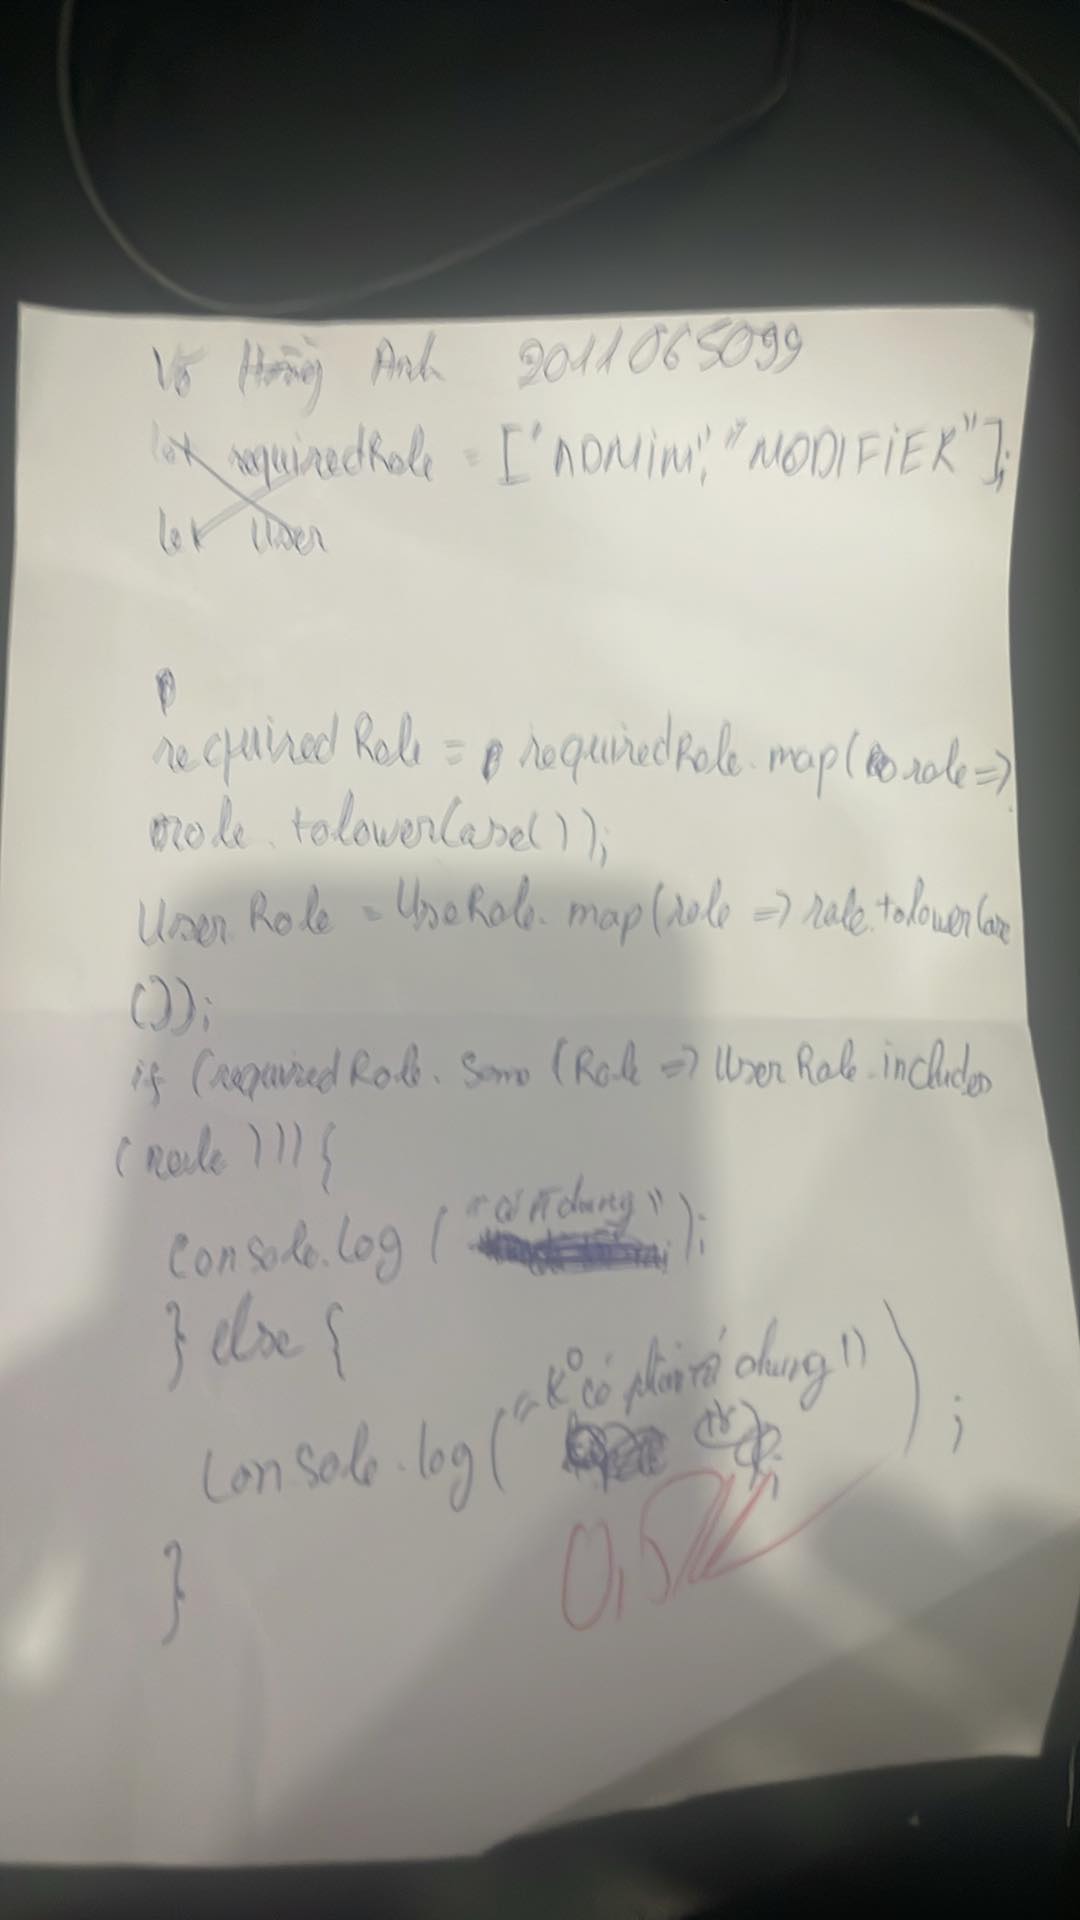 Võ Hoàng Anh 2011065099
let requiredRole = ["ADMiM", "MODIFiER"];
let User
requiredRole = requiredRole.map(role =>
role.tolowerCase());
User Role = UseRole.map(role => role.tolowerCase
());
if (requiredRole.Some (Role => User Role.includes
(role))){
console.log (" dung");
} else {
console.log("K° có dung");
0,5đ
}